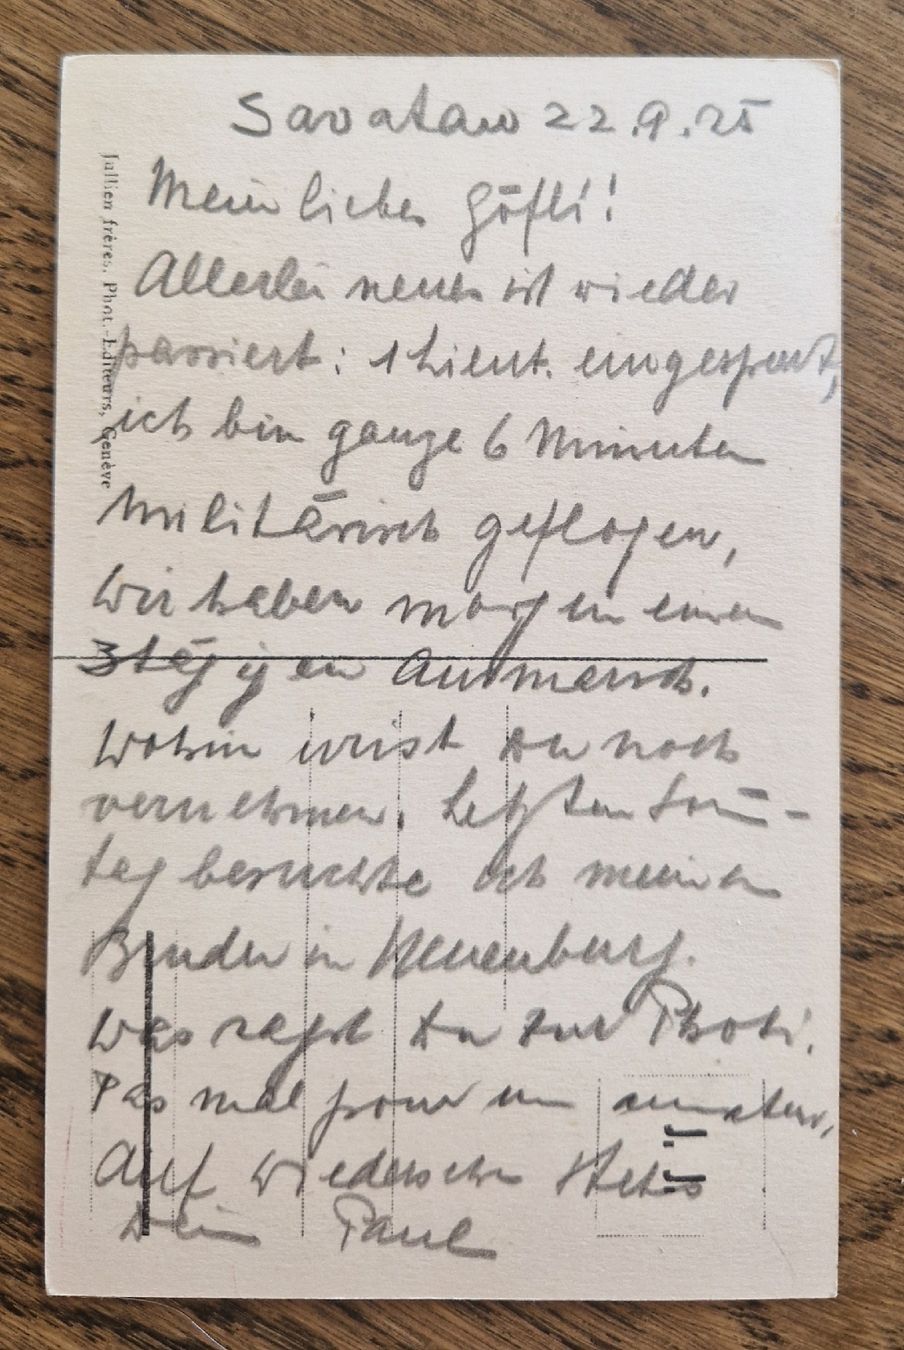 Savatan 22.9.25
Mein liebes Göfli!
Allerlei neues ist wieder
passiert: 1 Lieut. eingesperrt,
ich bin ganze 6 Minuten
militärisch geflogen,
wir haben morgen einen
3tägigen Ausmarsch.
Wohin wirst Du noch
vernehmen. Letzten Sonn-
tag besuchte ich meinen
Bruder in Neuenburg.
Was sagst Du zur Photi.
Pas mal pour un amateur,
Auf Wiedersehen stets
Dein Paul
Jullien frères, Phot.-Editeurs, Genève